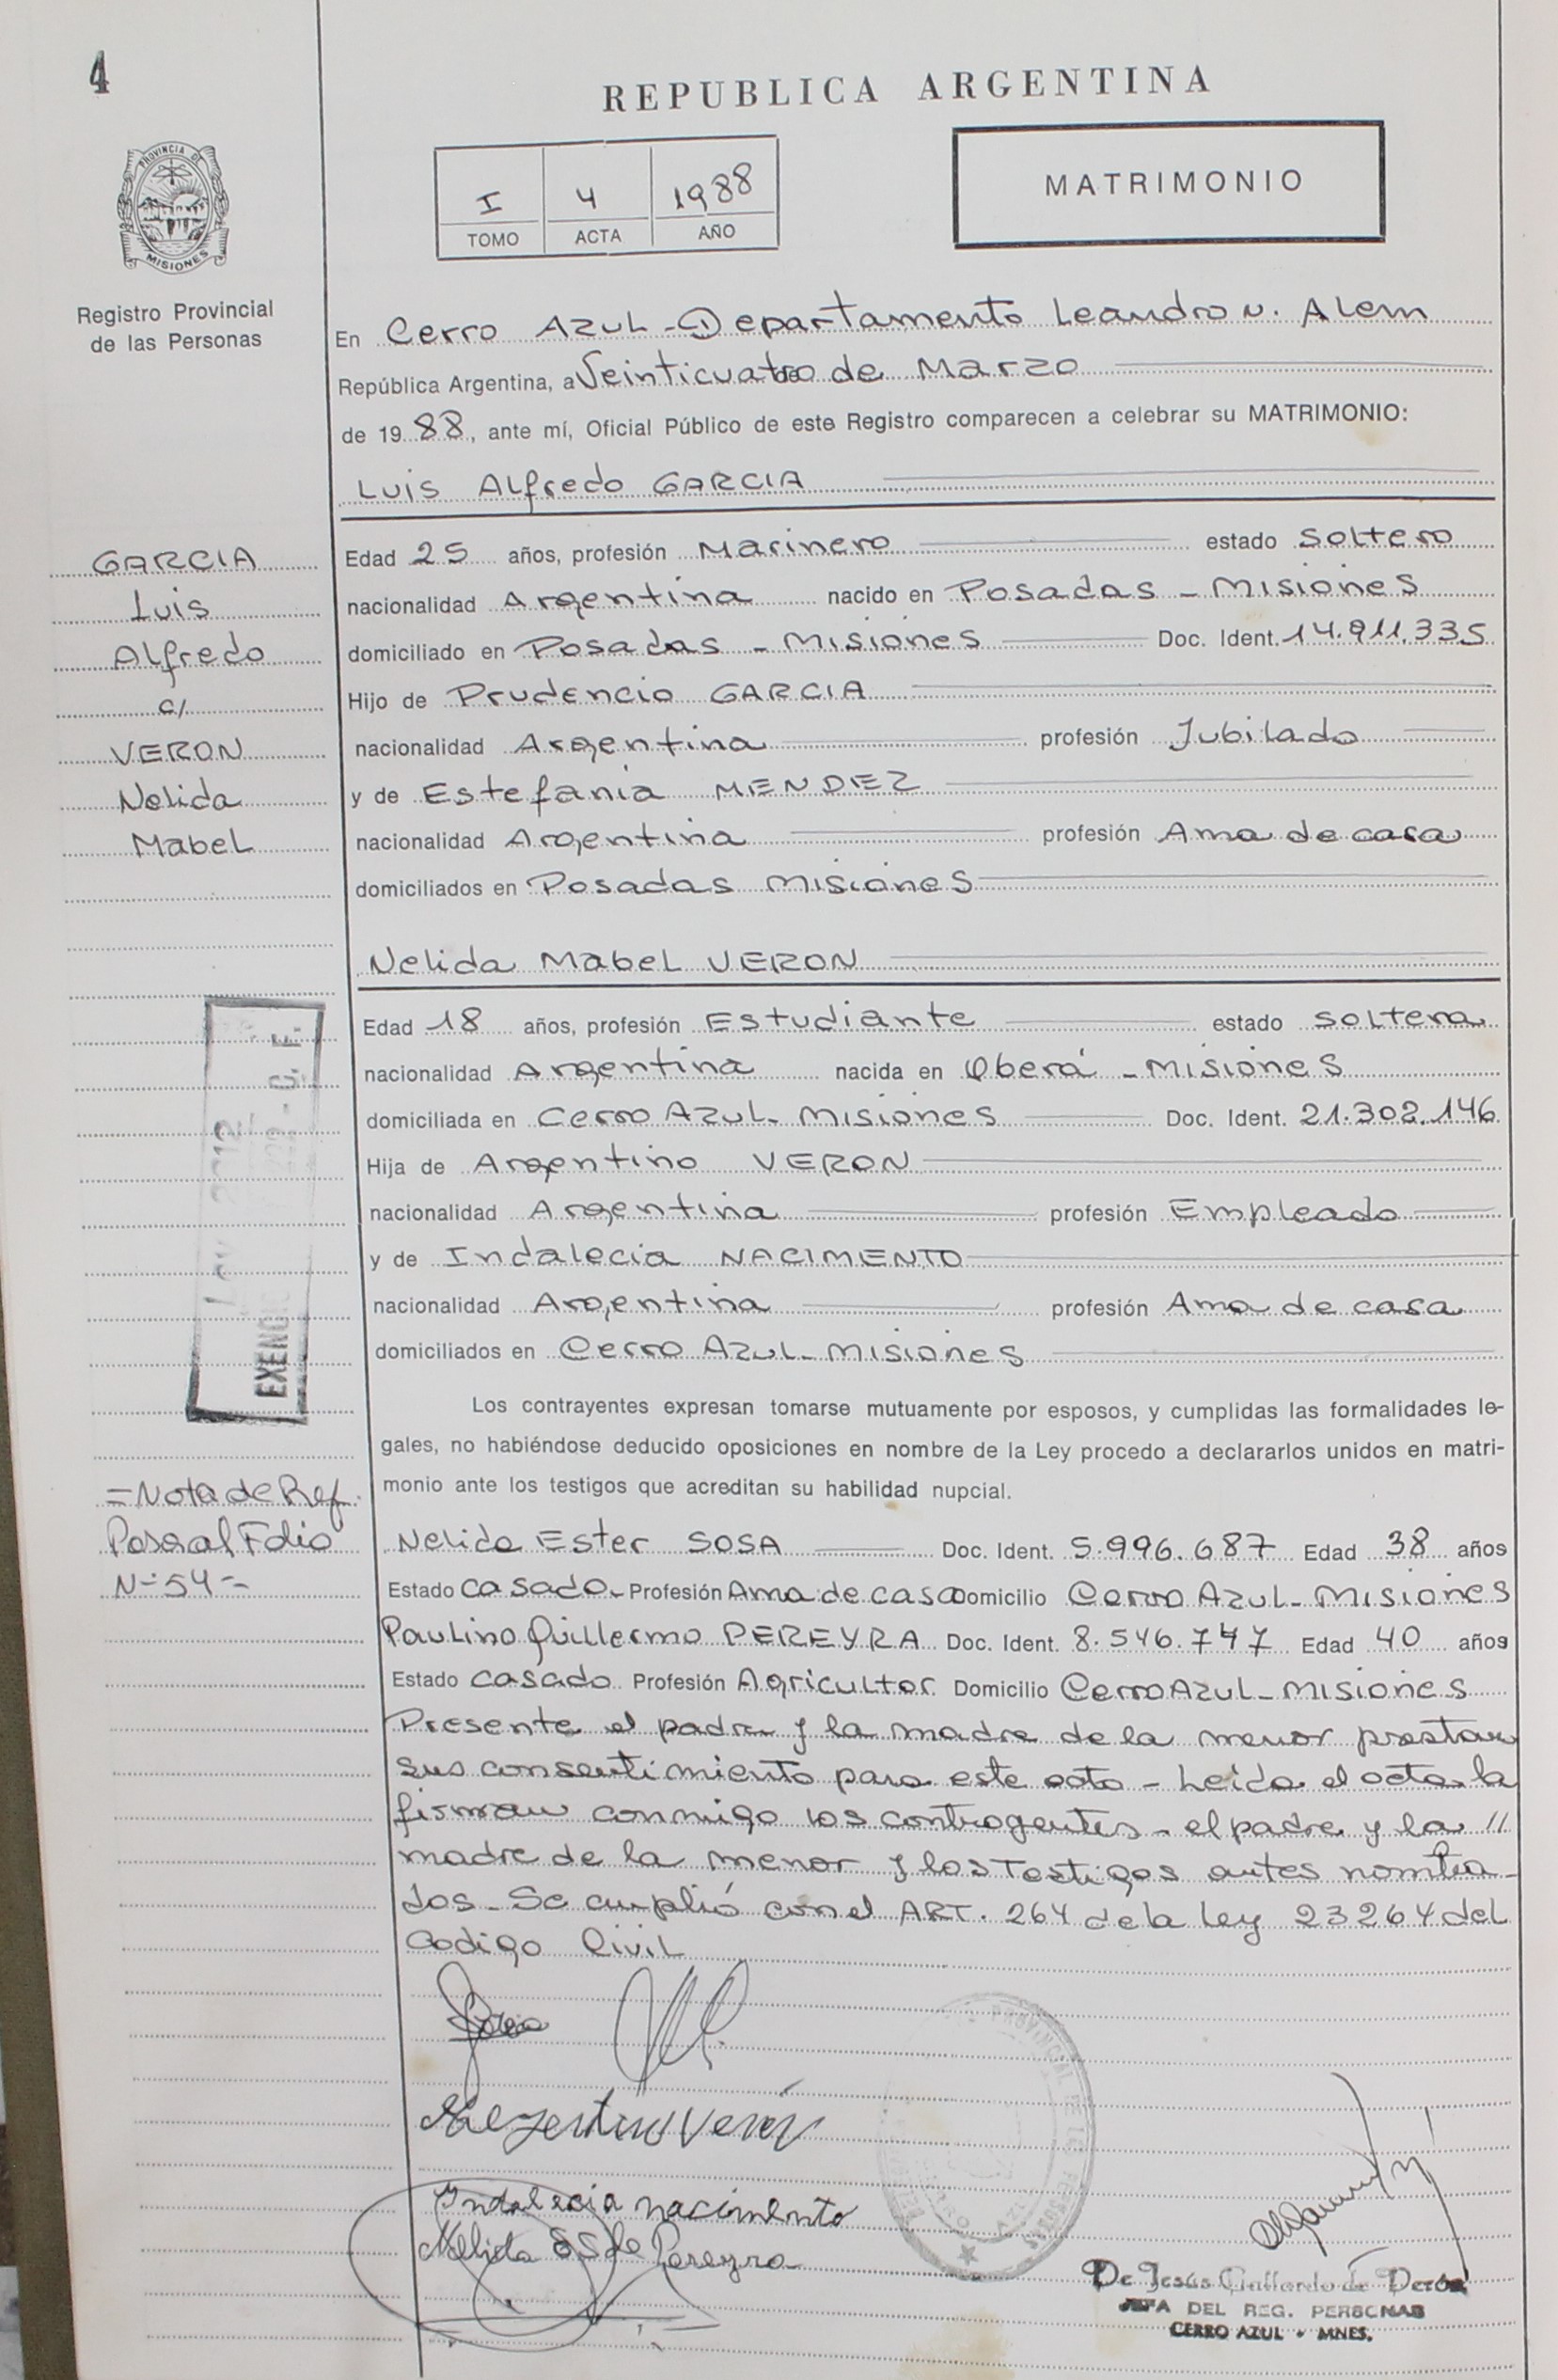 4
REPUBLICA ARGENTINA
PROVINCIA DE
MISIONES
I 4 1988
TOMO ACTA AÑO
MATRIMONIO
Registro Provincial
de las Personas
En Cerro Azul - Departamento Leandro N. Alem
República Argentina, a Veinticuatro de Marzo
de 1988, ante mí, Oficial Público de este Registro comparecen a celebrar su MATRIMONIO:
Luis Alfredo GARCIA
GARCIA
Luis
Alfredo
c/
VERON
Nelida
Mabel
Edad 25 años, profesión Marinero estado Soltero
nacionalidad Argentina nacido en Posadas - Misiones
domiciliado en Posadas - Misiones Doc. Ident. 14.911.335
Hijo de Prudencio GARCIA
nacionalidad Argentina profesión Jubilado
y de Estefania MENDEZ
nacionalidad Argentina profesión Ama de casa
domiciliados en Posadas Misiones
Nelida Mabel VERON
Edad 18 años, profesión Estudiante estado soltera
nacionalidad Argentina nacida en Oberá - Misiones
domiciliada en Cerro Azul - Misiones Doc. Ident. 21.302.146
Hija de Argentino VERON
nacionalidad Argentina profesión Empleado
y de Indalecia NACIMENTO
nacionalidad Argentina profesión Ama de casa
domiciliados en Cerro Azul - Misiones
Los contrayentes expresan tomarse mutuamente por esposos, y cumplidas las formalidades le-
gales, no habiéndose deducido oposiciones en nombre de la Ley procedo a declararlos unidos en matri-
monio ante los testigos que acreditan su habilidad nupcial.
= Nota de Ref.
Pasa al Folio
Nº 54 =
Nelida Ester SOSA Doc. Ident. 5.996.687 Edad 38 años
Estado casado - Profesión Ama de casa Domicilio Cerro Azul - Misiones
Paulino Guillermo PEREYRA Doc. Ident. 8.546.747 Edad 40 años
Estado casado Profesión Agricultor Domicilio Cerro Azul - Misiones
Presente el padre y la madre de la menor prestan
sus consentimiento para este acto - Leida el acta la
firman conmigo los contrayentes - el padre y la //
madre de la menor y los Testigos antes nombra-
dos - Se cumplió con el ART. 264 de la Ley 23264 del
Codigo Civil
Argentino Verón
Indalecia nacimento
Nelida S de Pereyra
De Jesús Gallardo de
JEFA DEL REG. PERSONAS
CERRO AZUL - MNES.